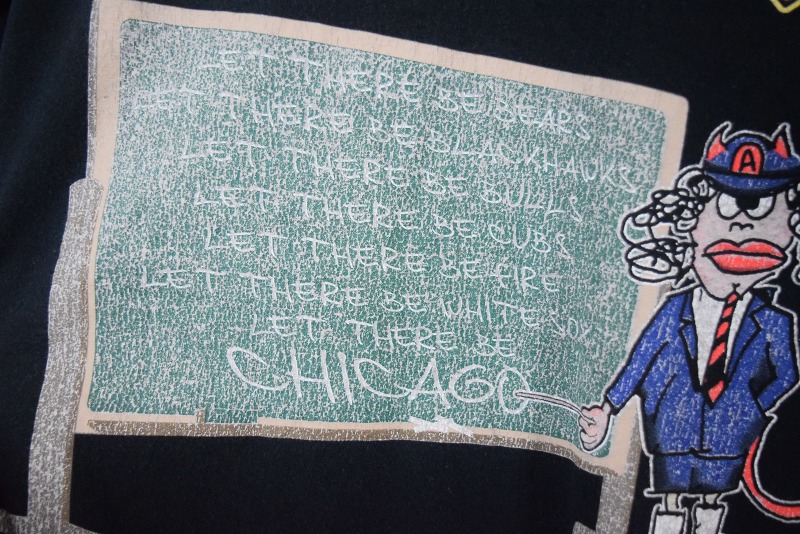 LET THERE BE BEARS
LET THERE BE BLACKHAWKS
LET THERE BE BULLS
LET THERE BE CUBS
LET THERE BE FIRE
LET THERE BE WHITE SOX
LET THERE BE
CHICAGO
A